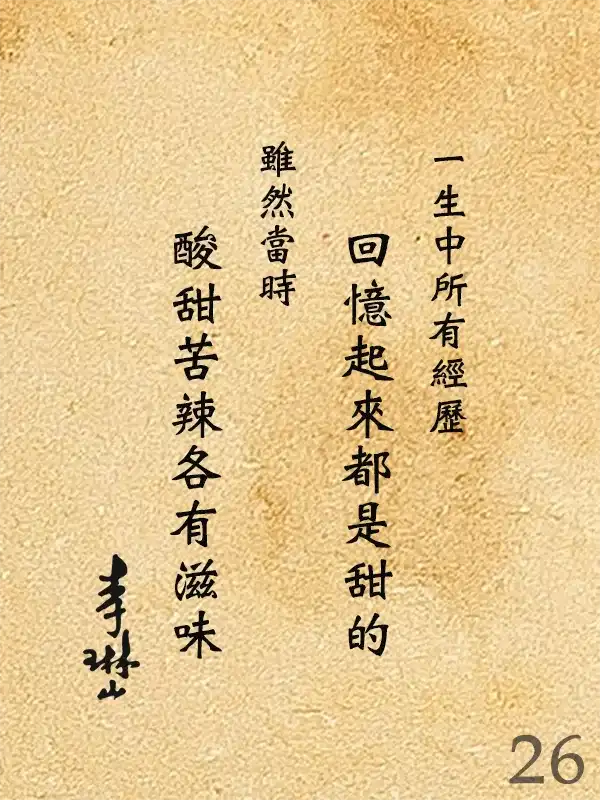 一生中所有經歷
回憶起來都是甜的
雖然當時
酸甜苦辣各有滋味
李琳山
26